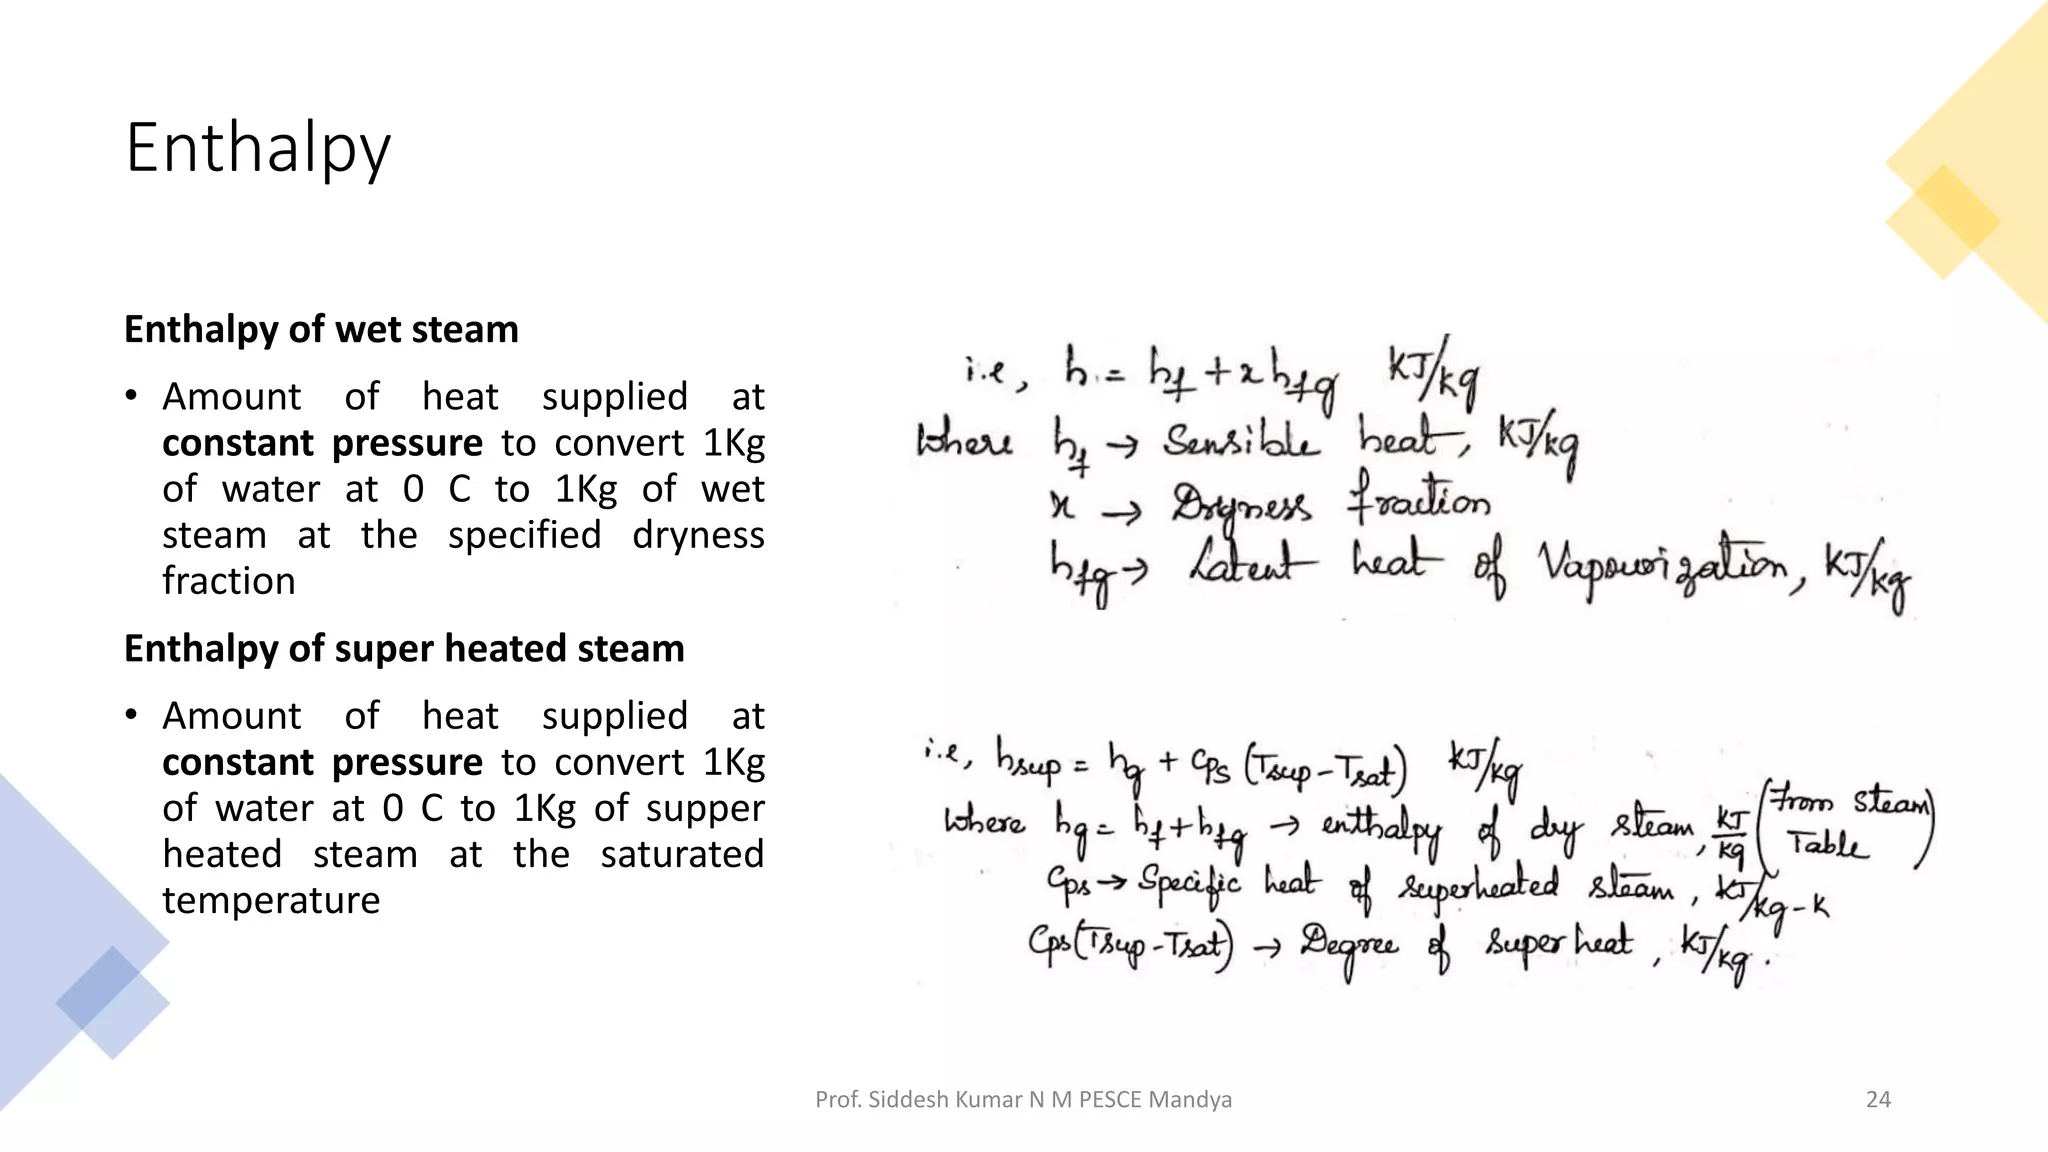 Enthalpy
Enthalpy of wet steam
• Amount of heat supplied at
constant pressure to convert 1Kg
of water at 0 C to 1Kg of wet
steam at the specified dryness
fraction
Enthalpy of super heated steam
• Amount of heat supplied at
constant pressure to convert 1Kg
of water at 0 C to 1Kg of supper
heated steam at the saturated
temperature
i.e, h = hf + x hfg KJ/kg
Where hf → Sensible heat, KJ/kg
x → Dryness fraction
hfg → Latent heat of Vapourization, KJ/kg
i.e, hsup = hg + Cps (Tsup - Tsat) KJ/kg
Where hg = hf + hfg → enthalpy of dry steam, KJ/kg (From Steam Table)
Cps → Specific heat of superheated steam, KJ/kg-K
Cps (Tsup - Tsat) → Degree of superheat, KJ/kg.
Prof. Siddesh Kumar N M PESCE Mandya
24